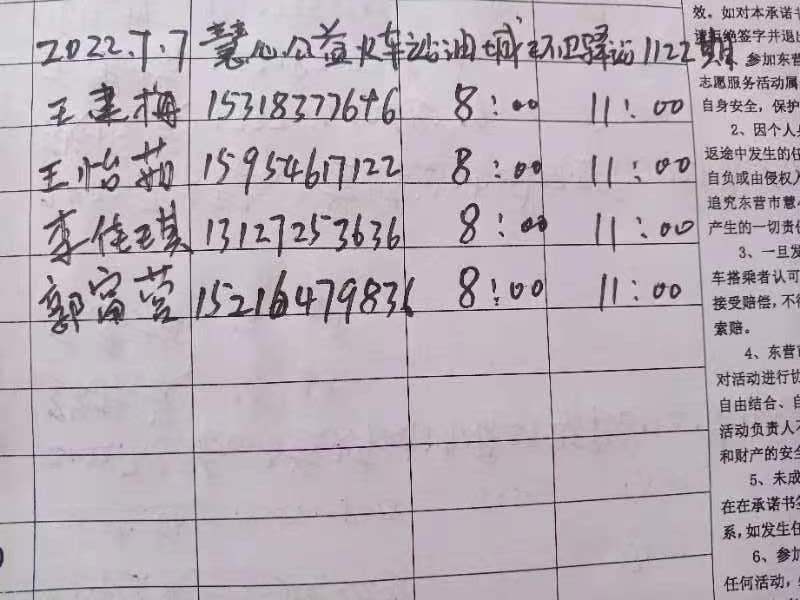 2022.7.7 慧心公益火车站油城环卫驿站1122期
王建梅 15318377646 8:00 11:00
王怡茹 15954617122 8:00 11:00
李佳琪 13127253636 8:00 11:00
郭富营 15216479836 8:00 11:00
效。如对本承诺书
绝签字并退出
参加东营
志愿服务活动属
自身安全，保护
2、因个人身
返途中发生的任
自负或由侵权人
追究东营市慧心
产生的一切责任
3、一旦发
车搭乘者认可
接受赔偿，不得
索赔。
4、东营市
对活动进行协
自由结合、自
活动负责人不
和财产的安全
5、未成
在在承诺书签
系，如发生任
6、参加
任何活动，